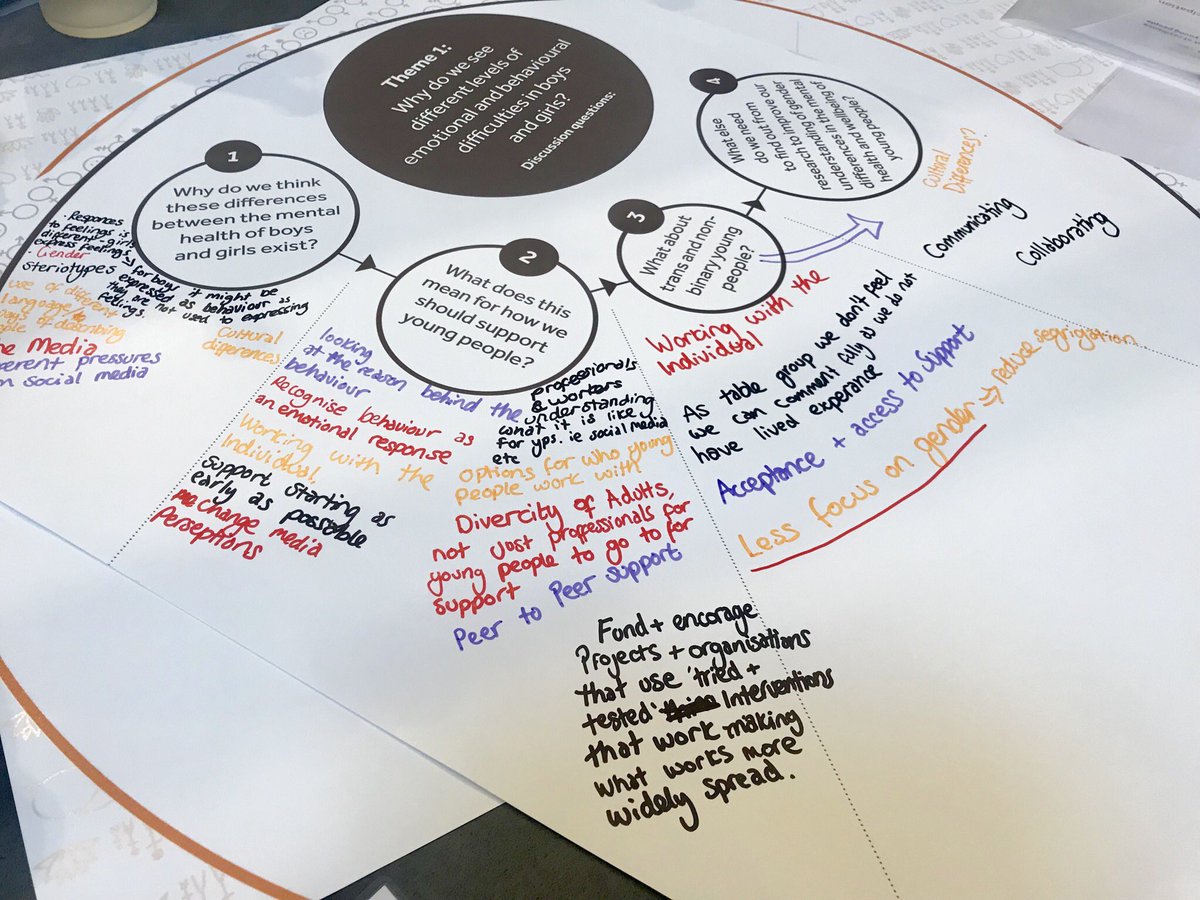 Theme 1:
Why do we see
different levels of
emotional and behavioural
difficulties in boys
and girls?
Discussion questions:
1
Why do we think
these differences
between the mental
health of boys
and girls exist?
· Responces
to feelings is
different - girls
express feelings → for boys it might be
expressed as behaviour as
they are not used to expressing
feelings.
· Gender
Steriotypes
use of different
language
of describing
Media
pressures
social media
Cultural
differences
2
What does this
mean for how we
should support
young people?
looking
at the reason behind the
behaviour
Recognise behaviour as
an emotional response
Working with the
Individual.
Support starting as
early as possible
change media
Perseptions
professionals
& workers
understanding
what it is like
for yps. ie social media
etc
options for who young
people work with
Divercity of Adults,
not just proffessionals for
young people to go to for
support
Peer to Peer support
Fund + encorage
Projects + organisations
that use 'tried +
tested' Interventions
that work making
what works more
widely spread.
3
What about
trans and non-
binary young
people?
Working with the
Individual
As table group we don't feel
we can comment fully as we do not
have lived experance
Acceptance + access to support
Less focus on gender → reduce segrigation
4
What else
do we need
to find out from
research to improve our
understanding of gender
differences in the mental
health and wellbeing of
young people?
Cultural
Difference?
Communicating
Collaborating